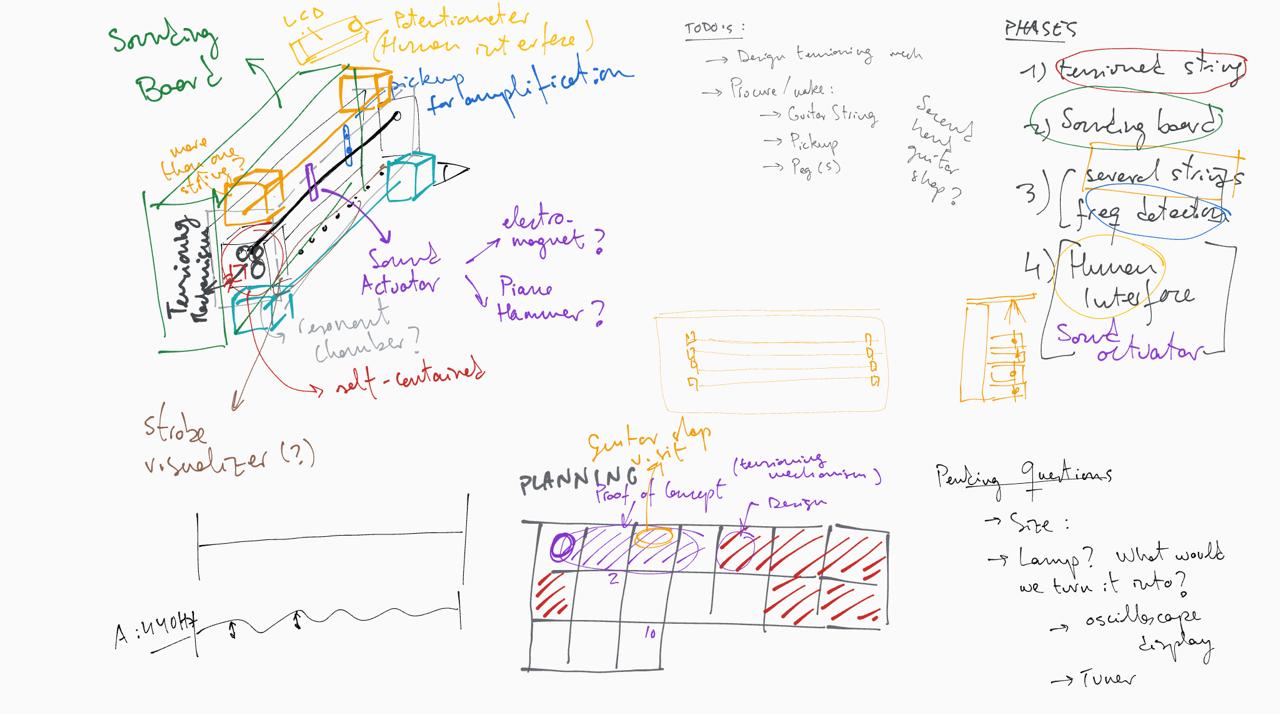 Sounding
Board
LCD
Potentiometer
(Human interface)
pickup
for amplification
more
than one
string?
Tensioning
Mechanism
Sound
Actuator
electro-
magnet?
Piano
Hammer?
resonant
chamber?
self-contained
strobe
visualizer (?)
A: 440Hz
TODO's:
→ Design tensioning mech
→ Procure/make:
→ Guitar String
→ Pickup
→ Peg(s)
Second
hand
guitar
shop?
PHASES
1) tensioned string
2) Sounding board
3) several strings
freq detection
4) Human
Interface
Sound
actuator
Guitar shop
visit
PLANNING
Proof of Concept
(tensioning
mechanism)
Design
2
10
Pending Questions
→ Size:
→ Lamp? What would
we turn it into?
→ oscilloscope
display
→ Tuner